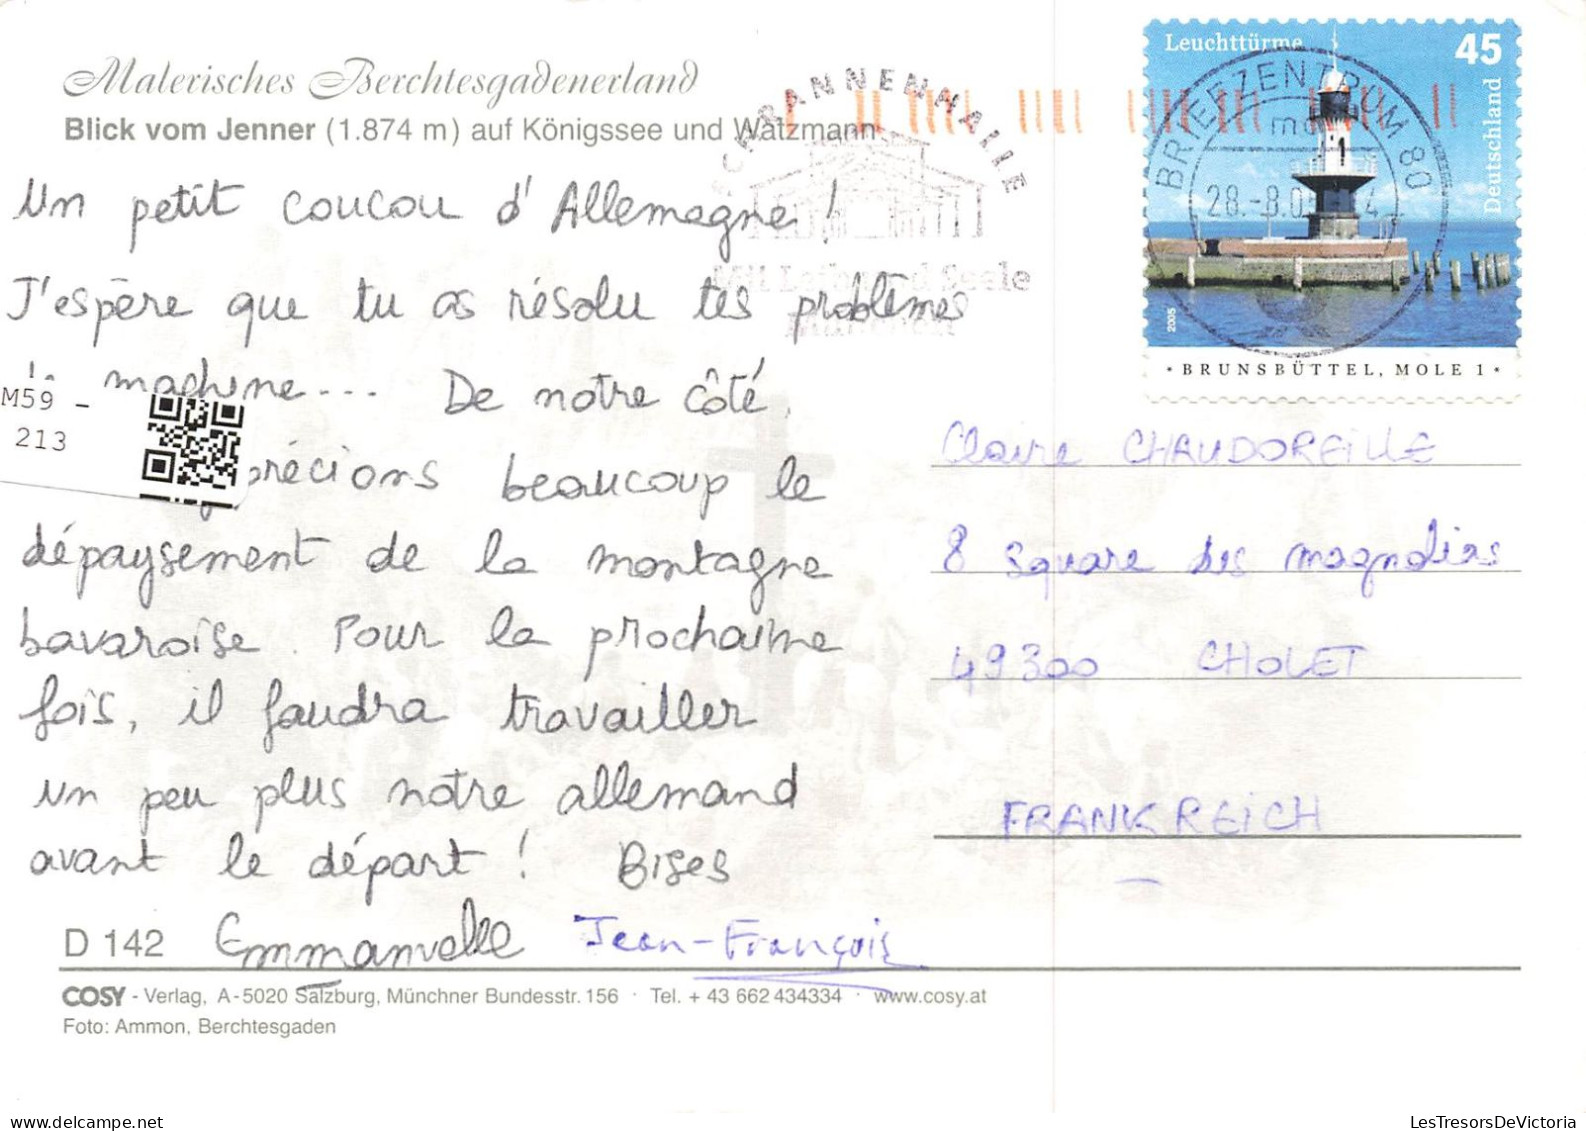 Malerisches Berchtesgadenerland
Blick vom Jenner (1.874 m) auf Königssee und Watzmann
Un petit coucou d'Allemagne !
J'espère que tu as résolu tes problèmes
machine... De notre côté,
précions beaucoup le
dépaysement de la montagne
bavaroise. Pour la prochaine
fois, il faudra travailler
un peu plus notre allemand
avant le départ ! Bises
Emmanuelle Jean-François
D 142
COSY - Verlag, A-5020 Salzburg, Münchner Bundesstr. 156 · Tel. + 43 662 434334 · www.cosy.at
Foto: Ammon, Berchtesgaden
M59 -
213
SCHRANNENHALLE
Mit Leib und Seele
München
Leuchttürme 45
Deutschland
2005
· BRUNSBÜTTEL, MOLE 1 ·
BRIEFZENTRUM 80
28.-8.0
Claire CHAUDOREILLE
8 square des magnolias
49300 CHOLET
FRANKREICH
LesTresorsDeVictoria